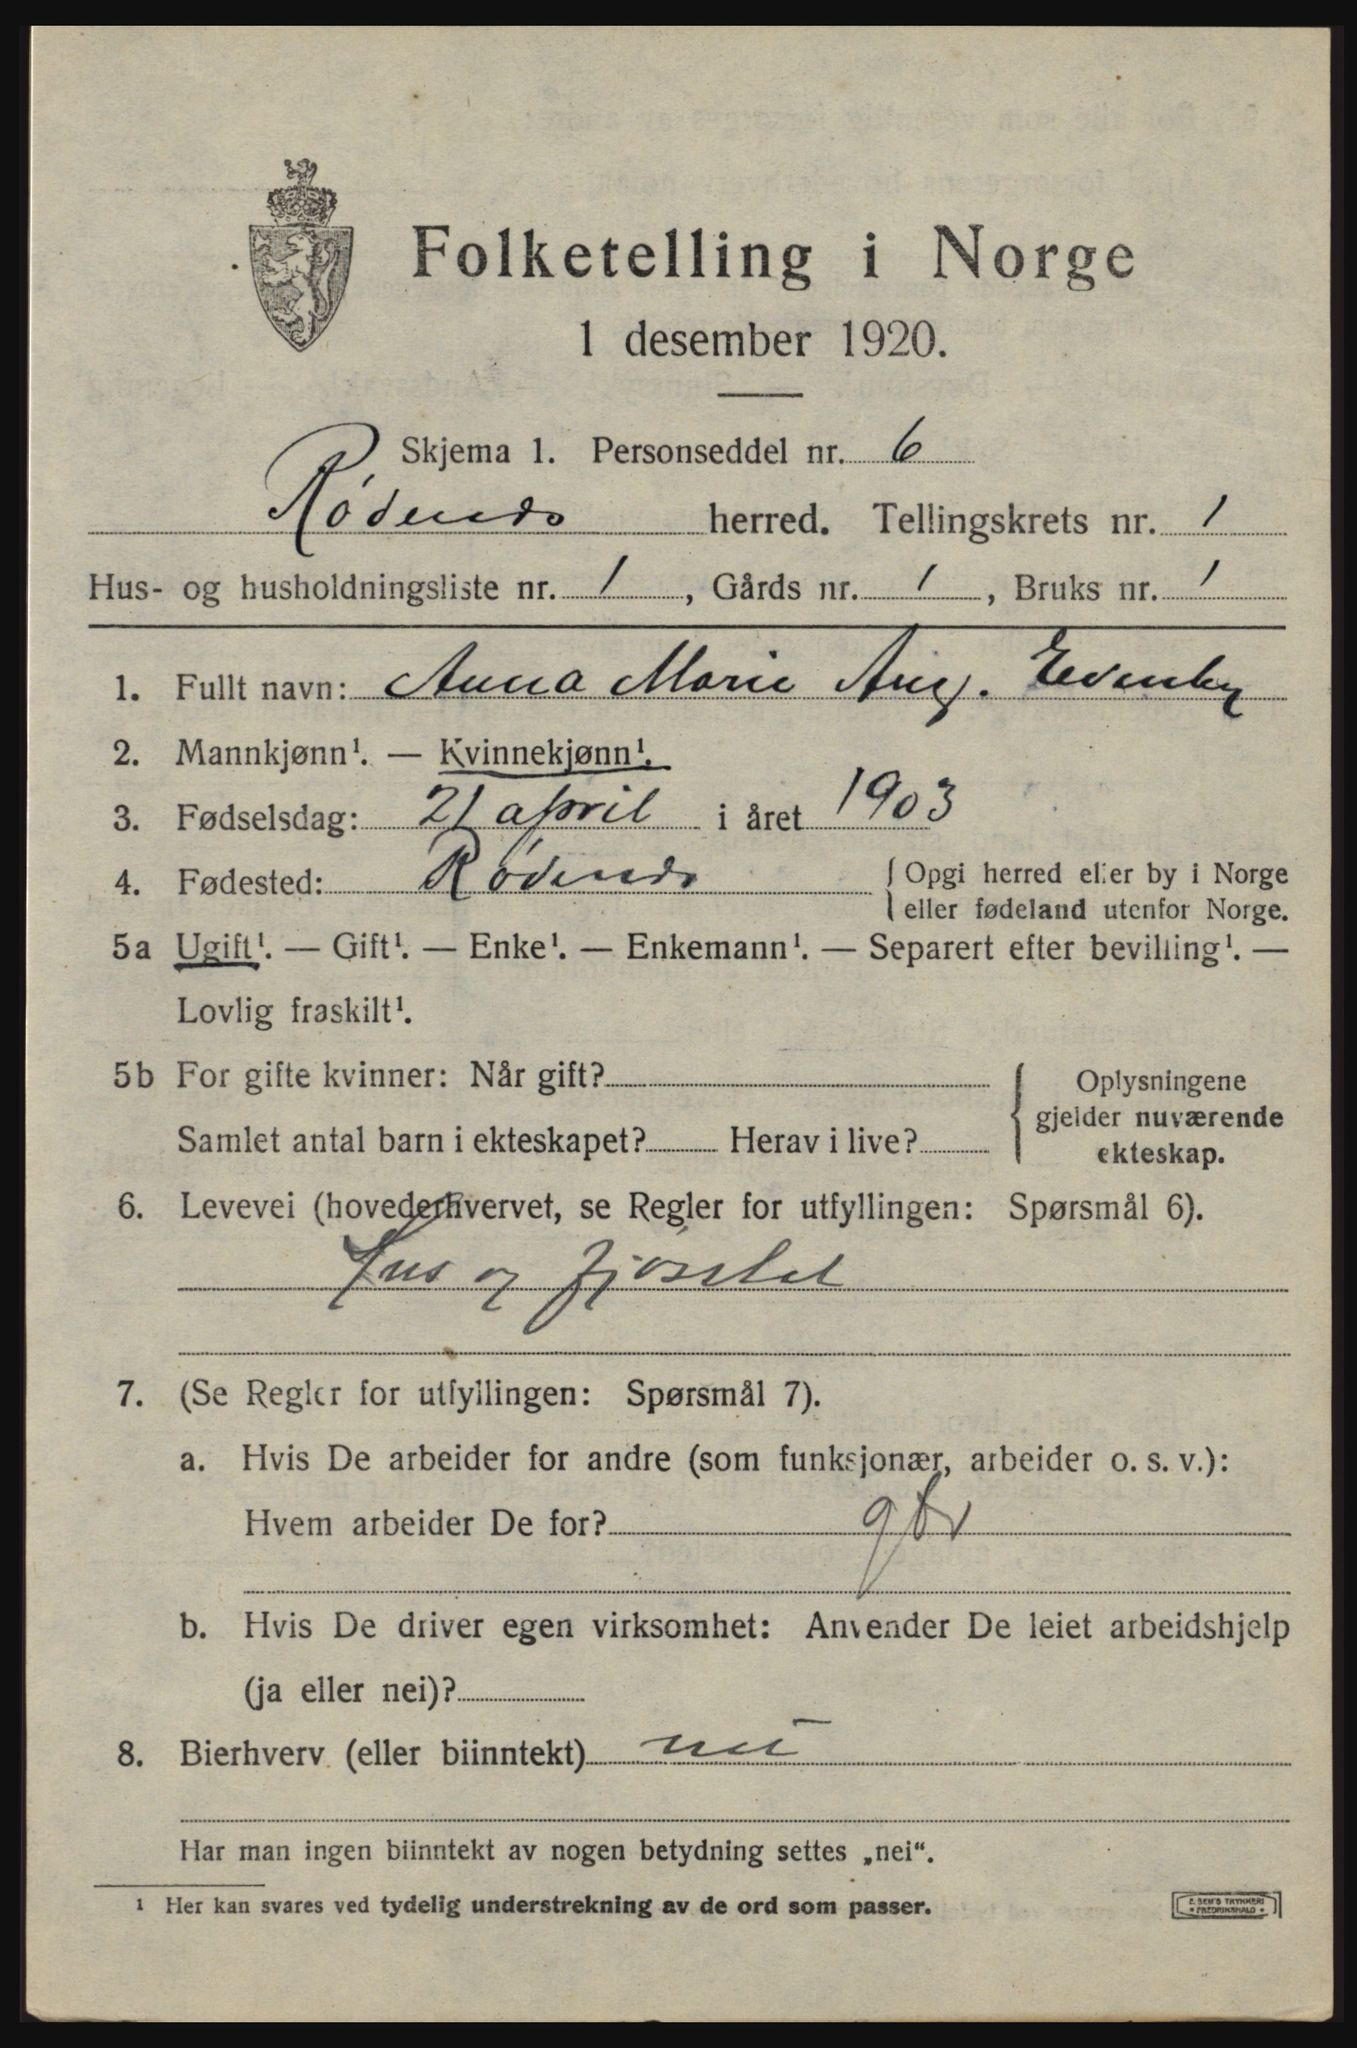 Folketelling i Norge
1 desember 1920.
Skjema 1. Personseddel nr. 6
Rødenes herred. Tellingskrets nr. 1
Hus- og husholdningsliste nr. 1, Gårds nr. 1, Bruks nr. 1
1. Fullt navn: Anna Marie Aug. Evenby
2. Mannkjønn¹. — Kvinnekjønn¹.
3. Fødselsdag: 21 april i året 1903
4. Fødested: Rødenes { Opgi herred eller by i Norge
eller fødeland utenfor Norge.
5a Ugift¹. — Gift¹. — Enke¹. — Enkemann¹. — Separert efter bevilling¹. —
Lovlig fraskilt¹.
5b For gifte kvinner: Når gift?
Samlet antal barn i ekteskapet? Herav i live?
{ Oplysningene
gjelder nuværende
ekteskap.
6. Levevei (hovederhvervet, se Regler for utfyllingen: Spørsmål 6).
Hus og fjösstel
7. (Se Regler for utfyllingen: Spørsmål 7).
a. Hvis De arbeider for andre (som funksjonær, arbeider o. s. v.):
Hvem arbeider De for? gbr
b. Hvis De driver egen virksomhet: Anvender De leiet arbeidshjelp
(ja eller nei)?
8. Bierhverv (eller biinntekt) nei
Har man ingen biinntekt av nogen betydning settes „nei“.
¹ Her kan svares ved tydelig understrekning av de ord som passer.
E. SEM'S TRYKKERI
• FREDRIKSHALD •